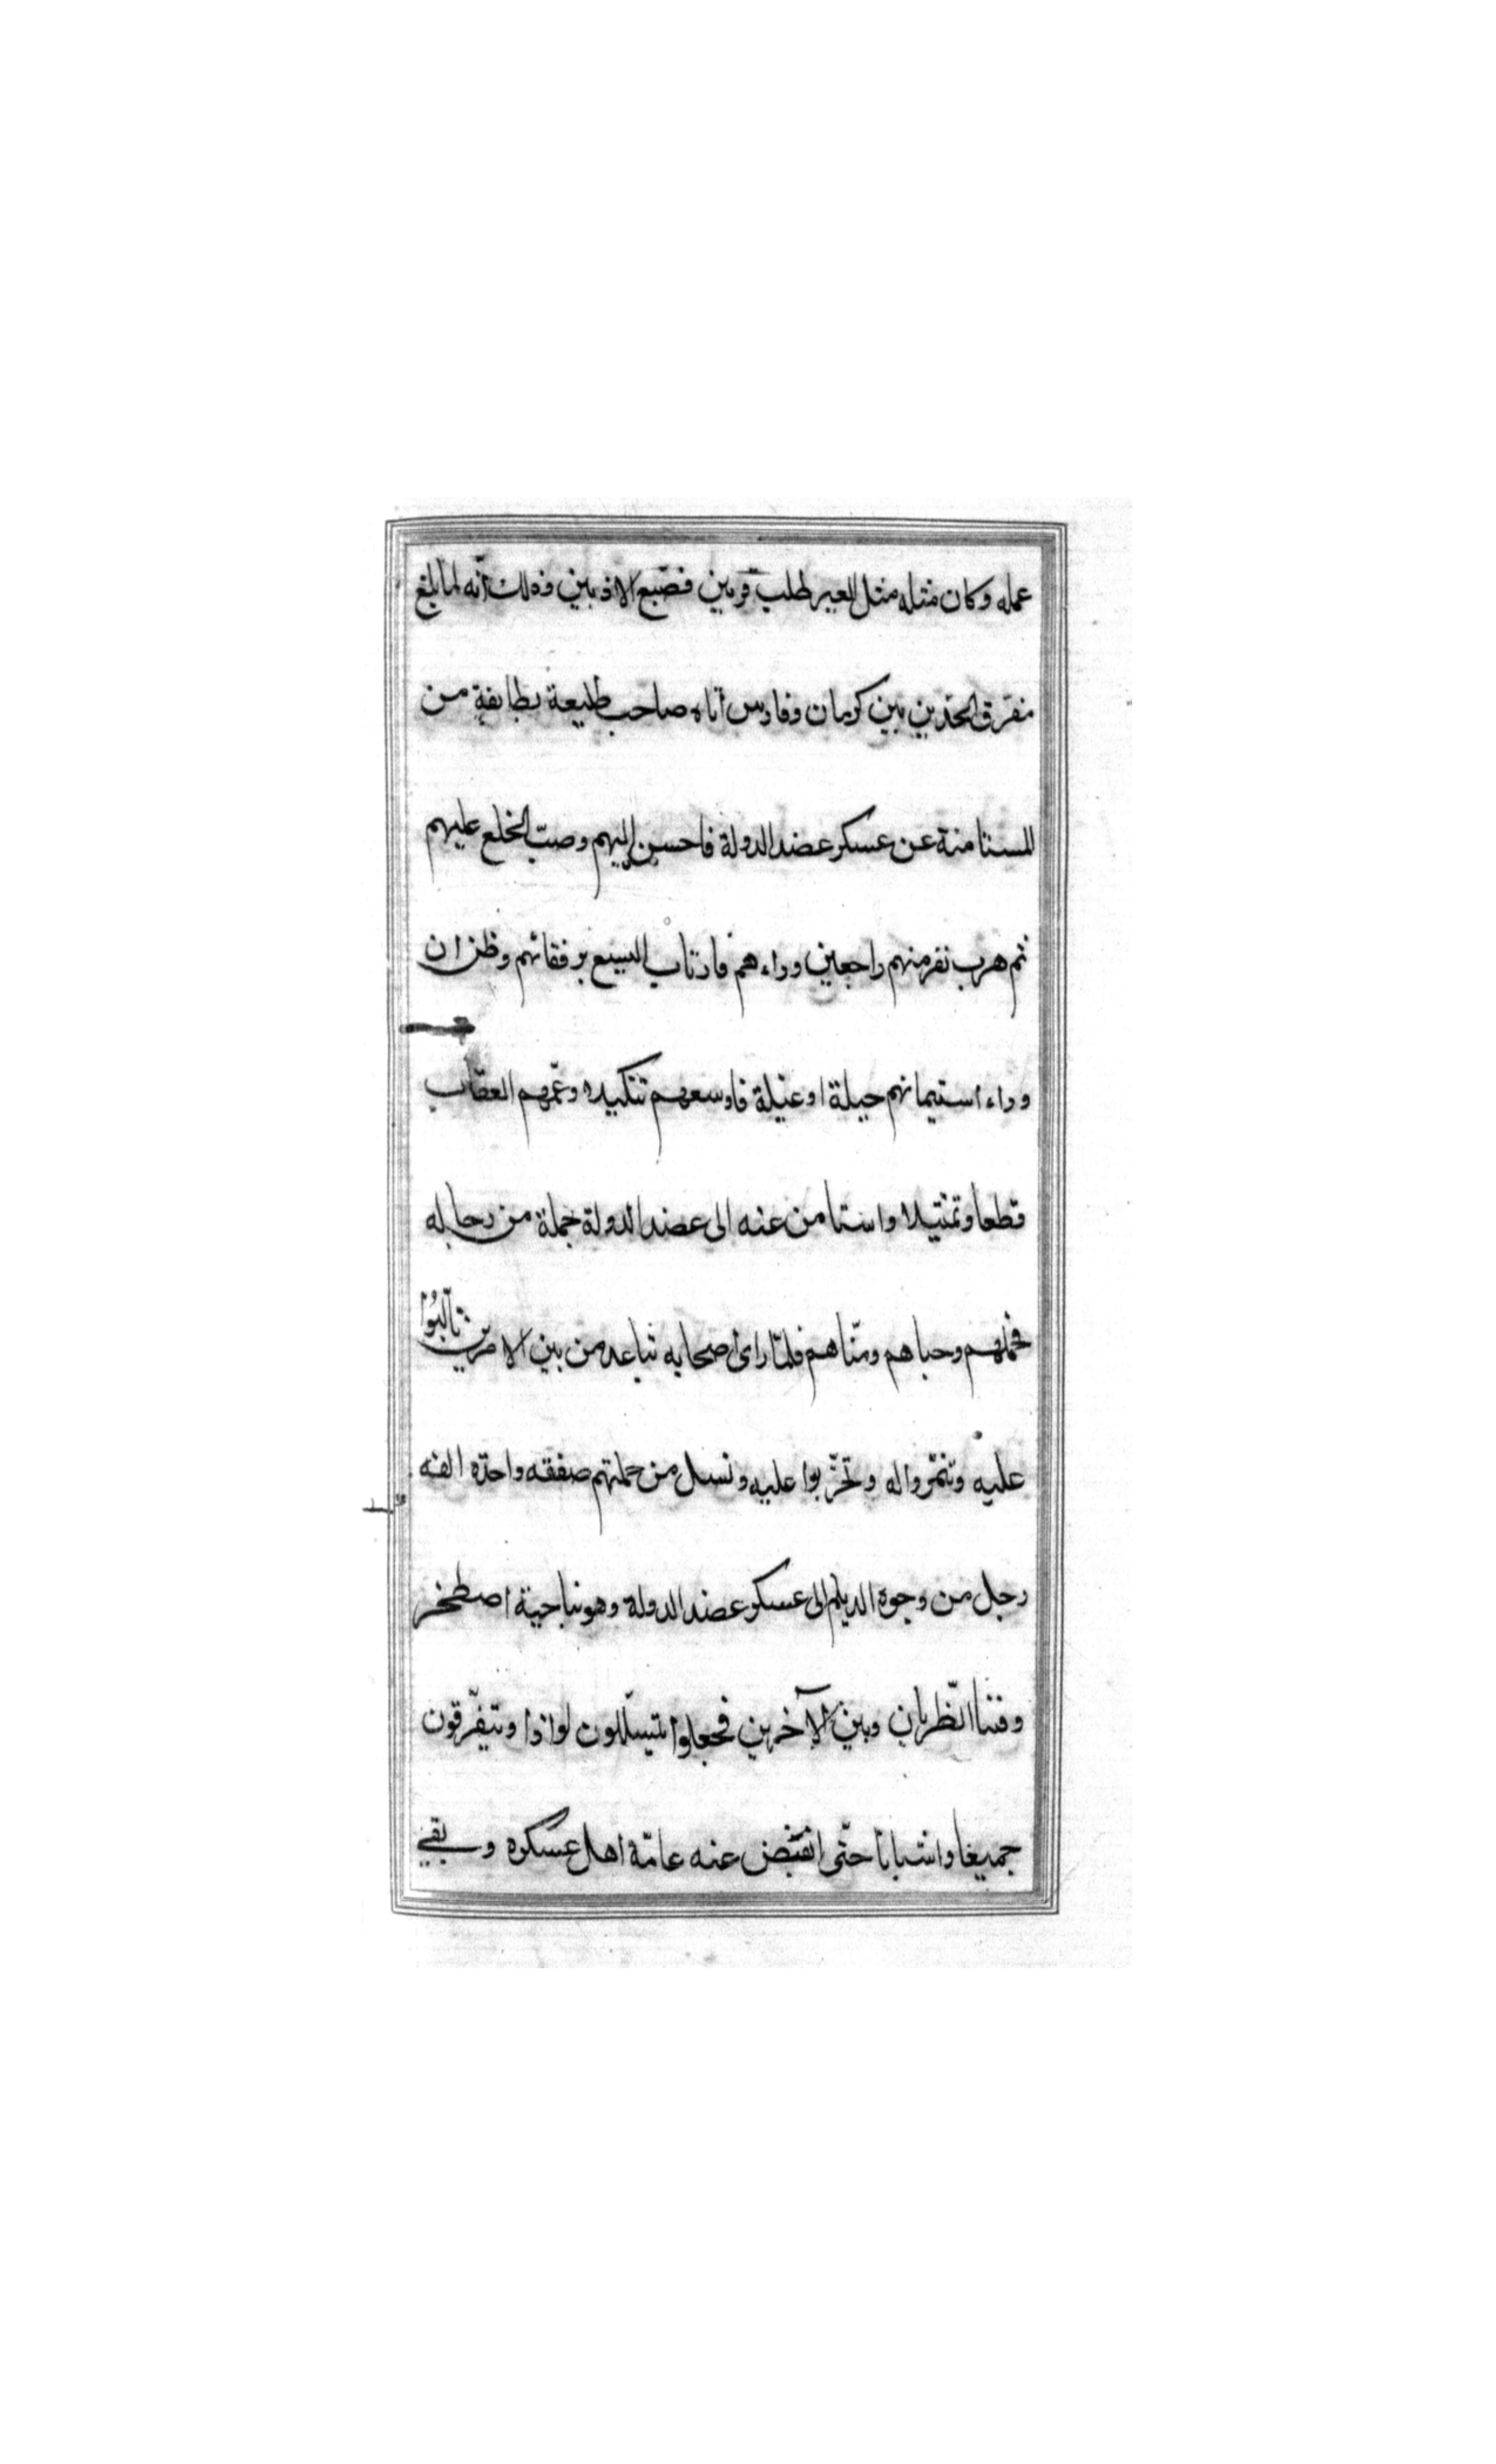 عمله وكان مثله مثل العير طلب قرنين فضيع الاذنين وذلك انه لما بلغ
مفرق الحدّين بين كرمان وفارس أتاه صاحب طليعة بطايفة من
المستامنة عن عسكر عضد الدولة فاحسن اليهم وصبّ الخلع عليهم
ثم هرب نفر منهم راجعين وراءهم فارتاب اليسع برفقائهم وظن ان
وراء استيمانهم حيلة او غيلة فاوسعهم تنكيلا وعمّهم العقاب
قطعا وتمثيلا واستامن عنه الى عضد الدولة جملة من رجاله
فحملهم وحباهم ومنّاهم فلمّا راى اصحابه تباعد من بين الامرين تألّبُوا
عليه وتنمّروا له وتحزّبوا عليه ونسل من جملتهم صفقه واحدة الف
رجل من وجوه الديلم الى عسكر عضد الدولة وهو بناحية اصطخر
وبين الآخرين فجعلوا يتسلّلون لواذا ويتفرّقون
جميعا واشباتا حتّى انفضّ عنه عامّة اهل عسكره وبقي